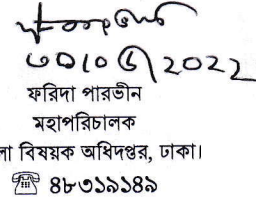 ৩০/০৫/2022
ফরিদা পারভীন
মহাপরিচালক
বিষয়ক অধিদপ্তর, ঢাকা।
☏ ৪৮৩১৯১৪৯